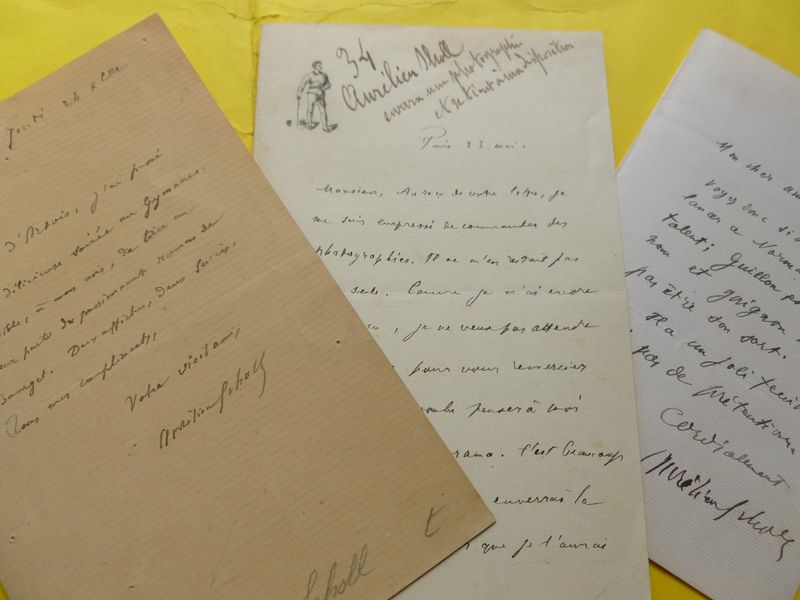 Jeudi 24 xbre
D'Artois, j'ai passé
délicieuse soirée au Gymnase.
à mon avis, de tirer un
parti du passionnant roman de
Bourget. Deux affiches, deux succès,
Tous mes compliments,
Votre vieil ami,
Aurélien Scholl
Scholl
34
Aurélien Scholl
enverra une photographie
et se tient à ma disposition
Paris 23 mai.
Monsieur, Au reçu de votre lettre, je
me suis empressé de commander des
photographies. Il ne m'en restait pas
seule. Comme je n'ai encore
, je ne veux pas attendre
pour vous remercier
penser à moi
rama. C'est beaucoup
enverrai la
que je l'aurai
Mon cher ami
Voyez donc si
lancer a
talent; Guillon
nom et guignon
pas être son sort.
Il a un joli
pas de prétention
Cordialement
Aurélien Scholl